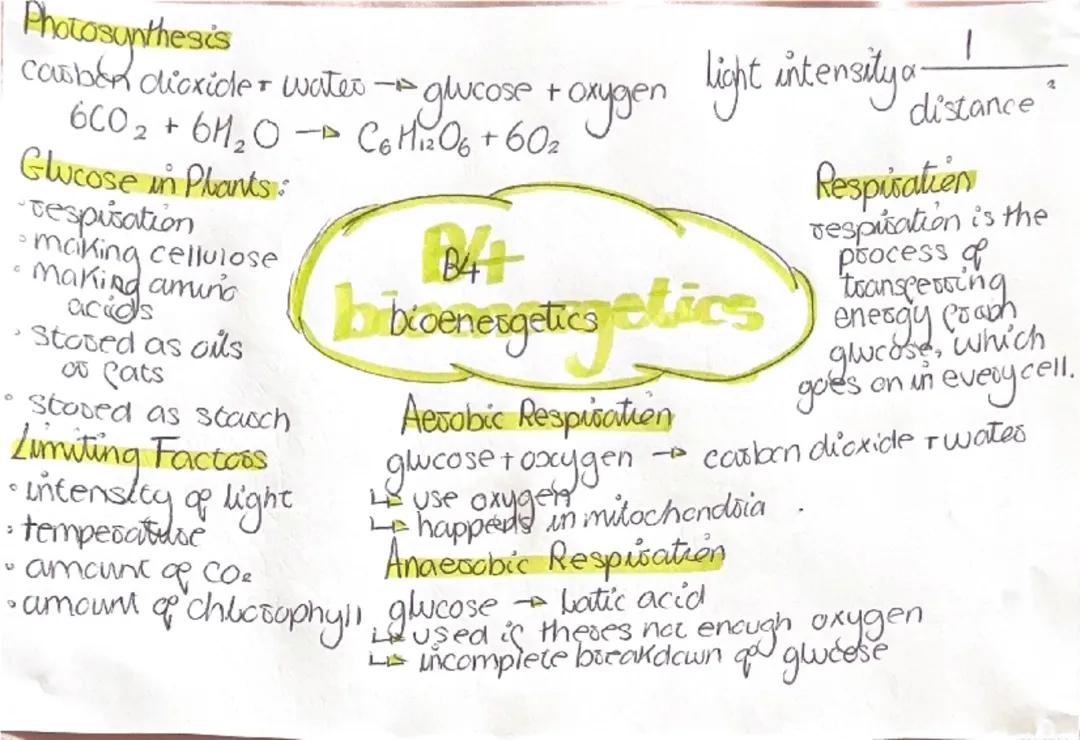 Photosynthesis
carbon dioxide + water → glucose + oxygen
6CO₂ + 6H₂O → C₆H₁₂O₆ + 6O₂
light intensity α 1
distance ²
Glucose in Plants:
• respiration
• making cellulose
• making amino
acids
• stored as oils
or fats
• stored as starch
Limiting Factors
• intensity of light
• temperature
• amount of CO₂
• amount of chlorophyll
B4
bioenergetics
Respiration
respiration is the
process of
transferring
energy from
glucose, which
goes on in every cell.
Aerobic Respiration
glucose + oxygen → carbon dioxide + water
↳ use oxygen
↳ happens in mitochondria
Anaerobic Respiration
glucose → Latic acid
↳ used if theres not enough oxygen
↳ incomplete breakdown of glucose